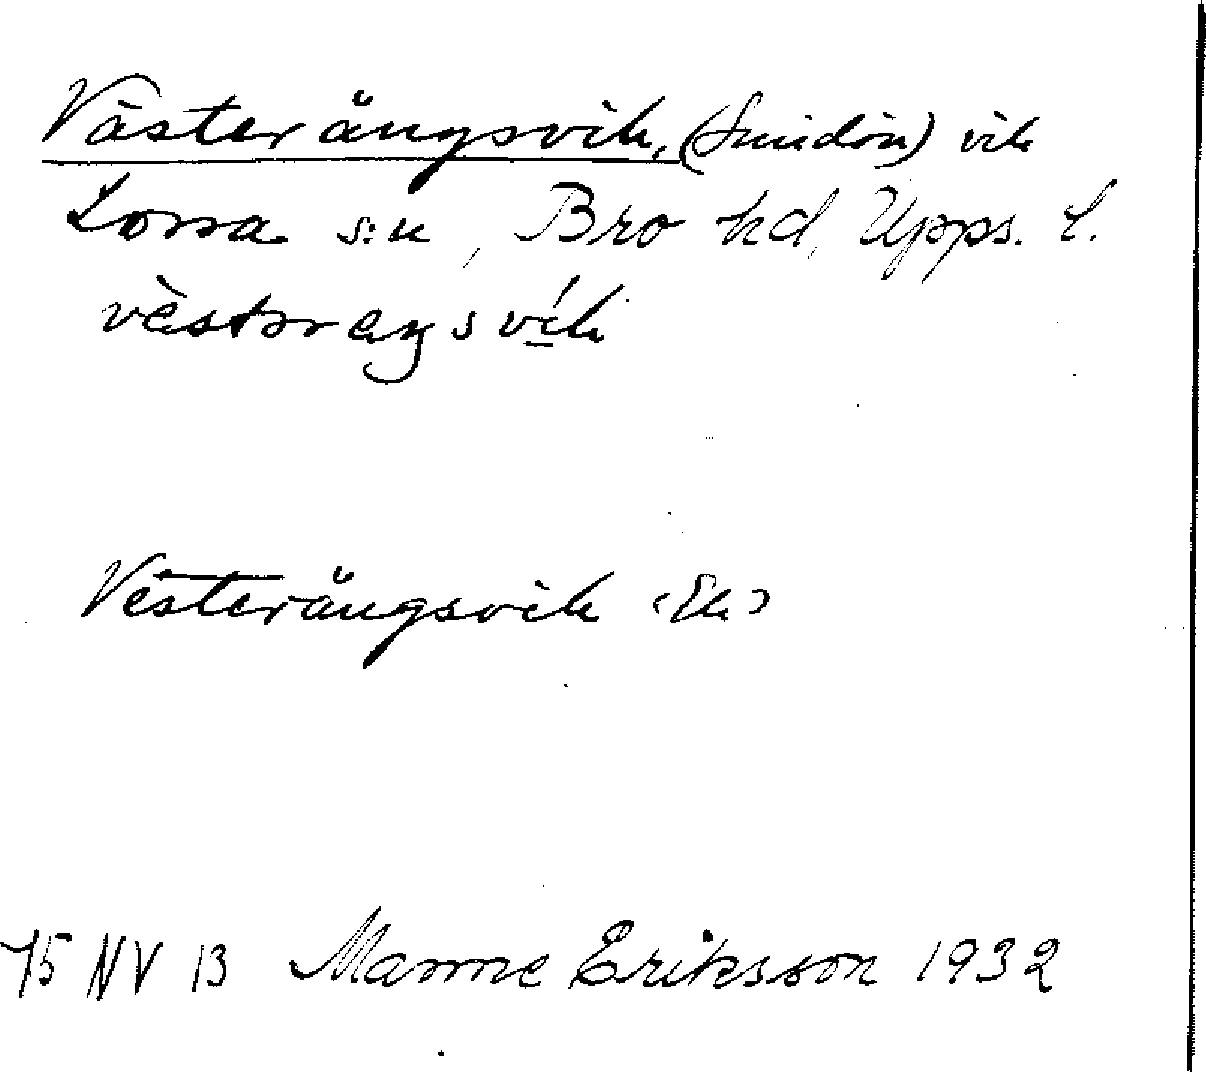 Västerängsvik, (Smidön) vik
Lossa s:n, Bro hd, Upps. l.
Vesterängsvik (Ek)
75 NV 13 Manne Eriksson 1932